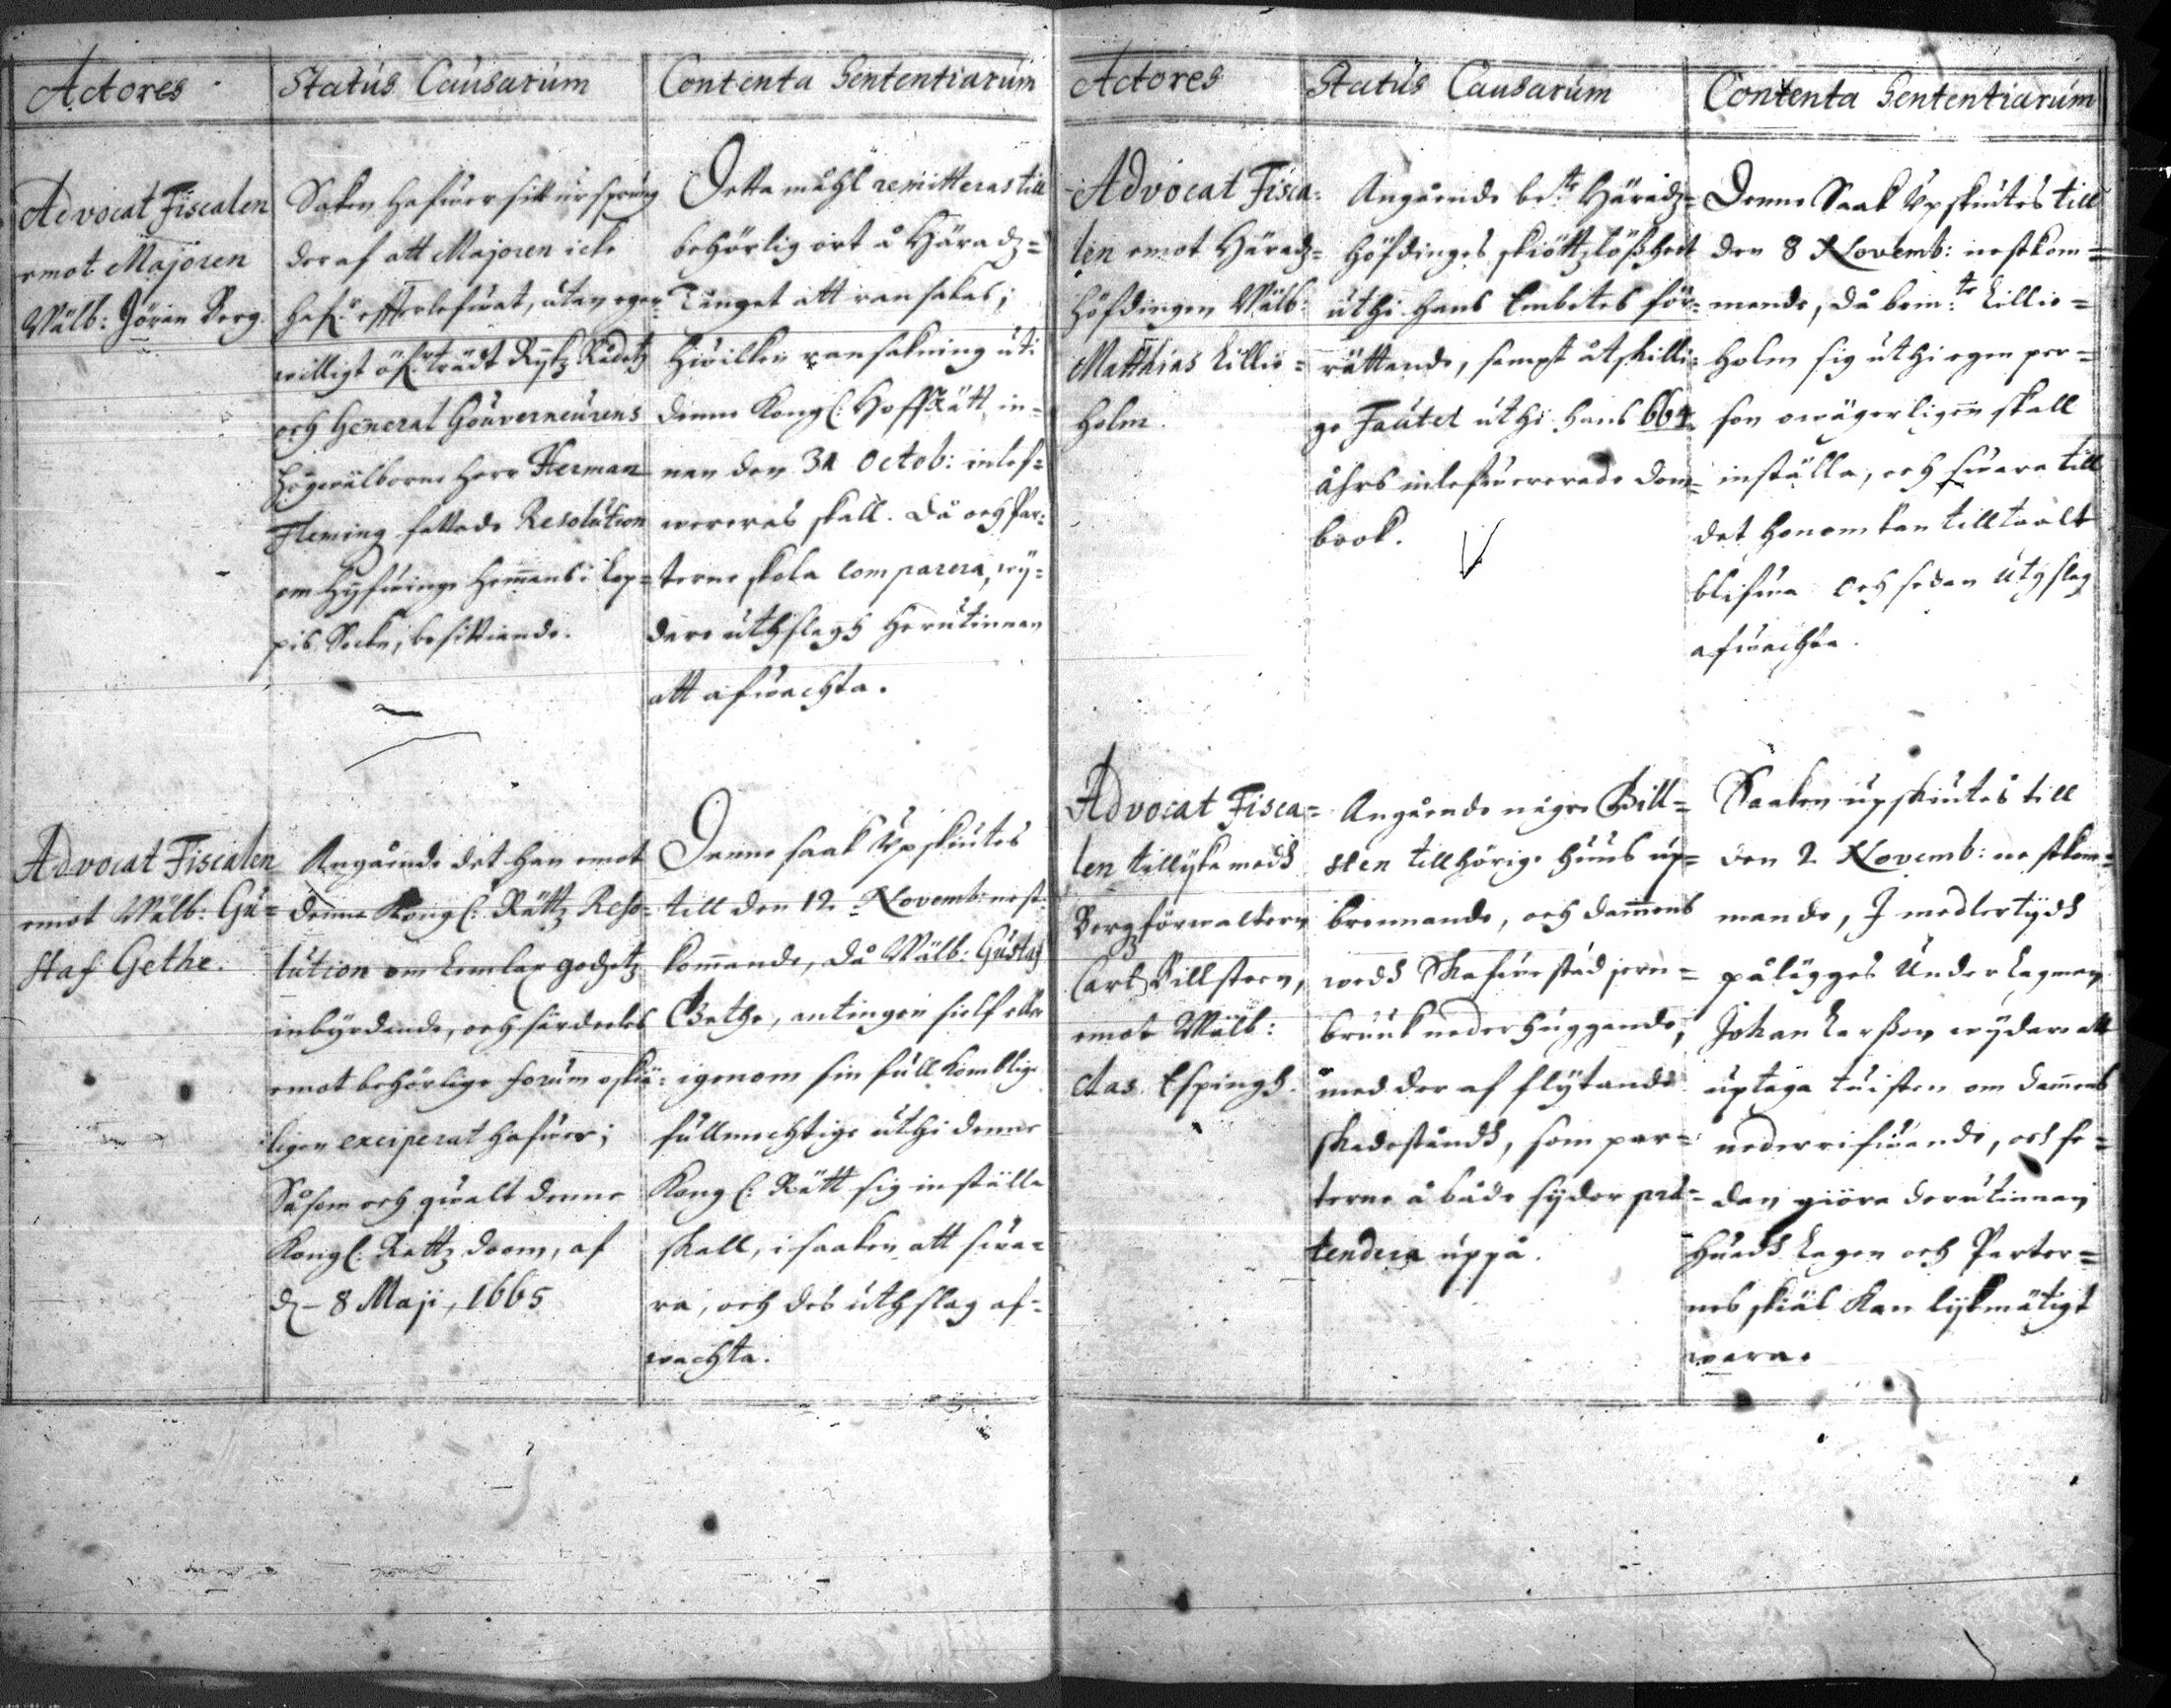 Actores
Status Causarum
Contenta Sententiarum
Advocat Fiscalen
emot Majoren
Wälb: Jöran Berg.
Saken hafwer sitt ursprung
deraf att Majoren icke
hafr. effterlefwat, utan egen-
willigt öfr.trädt Rijkz Rådetz
och General Gouverneurens
Högwälborne Herr Herman
Fleming fattade Resolution
om Hyfwinge Hemmans i Lop-
pis Sockn, besittiande.
Detta mähl remitteras till
behörlig ort å Häradz-
Tinget att ransakas;
Hwilken ransakning uti
denne Kongl: HoffRätt in-
nan den 31 Octob: inlef-
wereras skall. Då och Par-
terne skola comparera, wij-
dare uthslagh herutinnan
att afwachta.
Advocat Fiscalen
emot Wälb: Gu-
staf Gethe.
Angående det han emot
denne Kongl: Rättz Reso-
lution om Lemlax godzetz
inbyrdande, och särdeeles
emot behörlige forum oskiä-
ligen exciperat hafwer;
Såsom och qwalt denne
Kongl: Rättz doom, af
d. 8 Maji, 1665
Denne saak Upskiutes
till den 12 Novemb: nest-
kommande, då Wälb: Gustaf
Gethe, antingen sielf eller
igenom sin fullkomblige
fullmechtige uthi denne
Kongl: Rätt sig inställa
skall, i saaken att swa-
ra, och des uthslag af-
wachta.
Actores
Status Causarum
Contenta Sententiarum
Advocat Fisca-
len emot Häradz-
höfdingen Wälb:
Matthias Lillie-
holm.
Angående be:te Häradz-
höfdinges skiöttzlößheet
uthi hans Embetes för-
rättande, sampt åtskilli-
ge Fautet uthi hans 664
åhrs inlefwererade dom-
book.
Denne Saak Upskiutes till
den 8 Novemb: nestkom-
mande, då bem:te Lillie-
holm sig uthi egen per-
son owägerligen skall
inställa, och swara till
det honom kan tilltaalt
blifwa och sedan utslag
afwachta.
Advocat Fisca-
len tillijka medh
Bergzförwaltern
Carl Billsteen,
emot Wälb:
Clas Espingh.
Angående någre Bill-
sten tillhörige huus up-
brennande, och dammens
wedh Skafwestad jern-
bruuk nederhuggande,
med der af flytande
skadeståndh, som par-
terne å både sijdor præ-
tendera uppå.
Saaken upskiutes till
den 2 Novemb: nestkom-
mande, J medlertijdh
pålägges Underlagman
Johan Larßon wijdare att
uptaga twisten om dammens
nederrifwande, och se-
dan giöra derutinnan
hwadh Lagen och Parter-
nes skiäl kan lijkmätigt
wara.